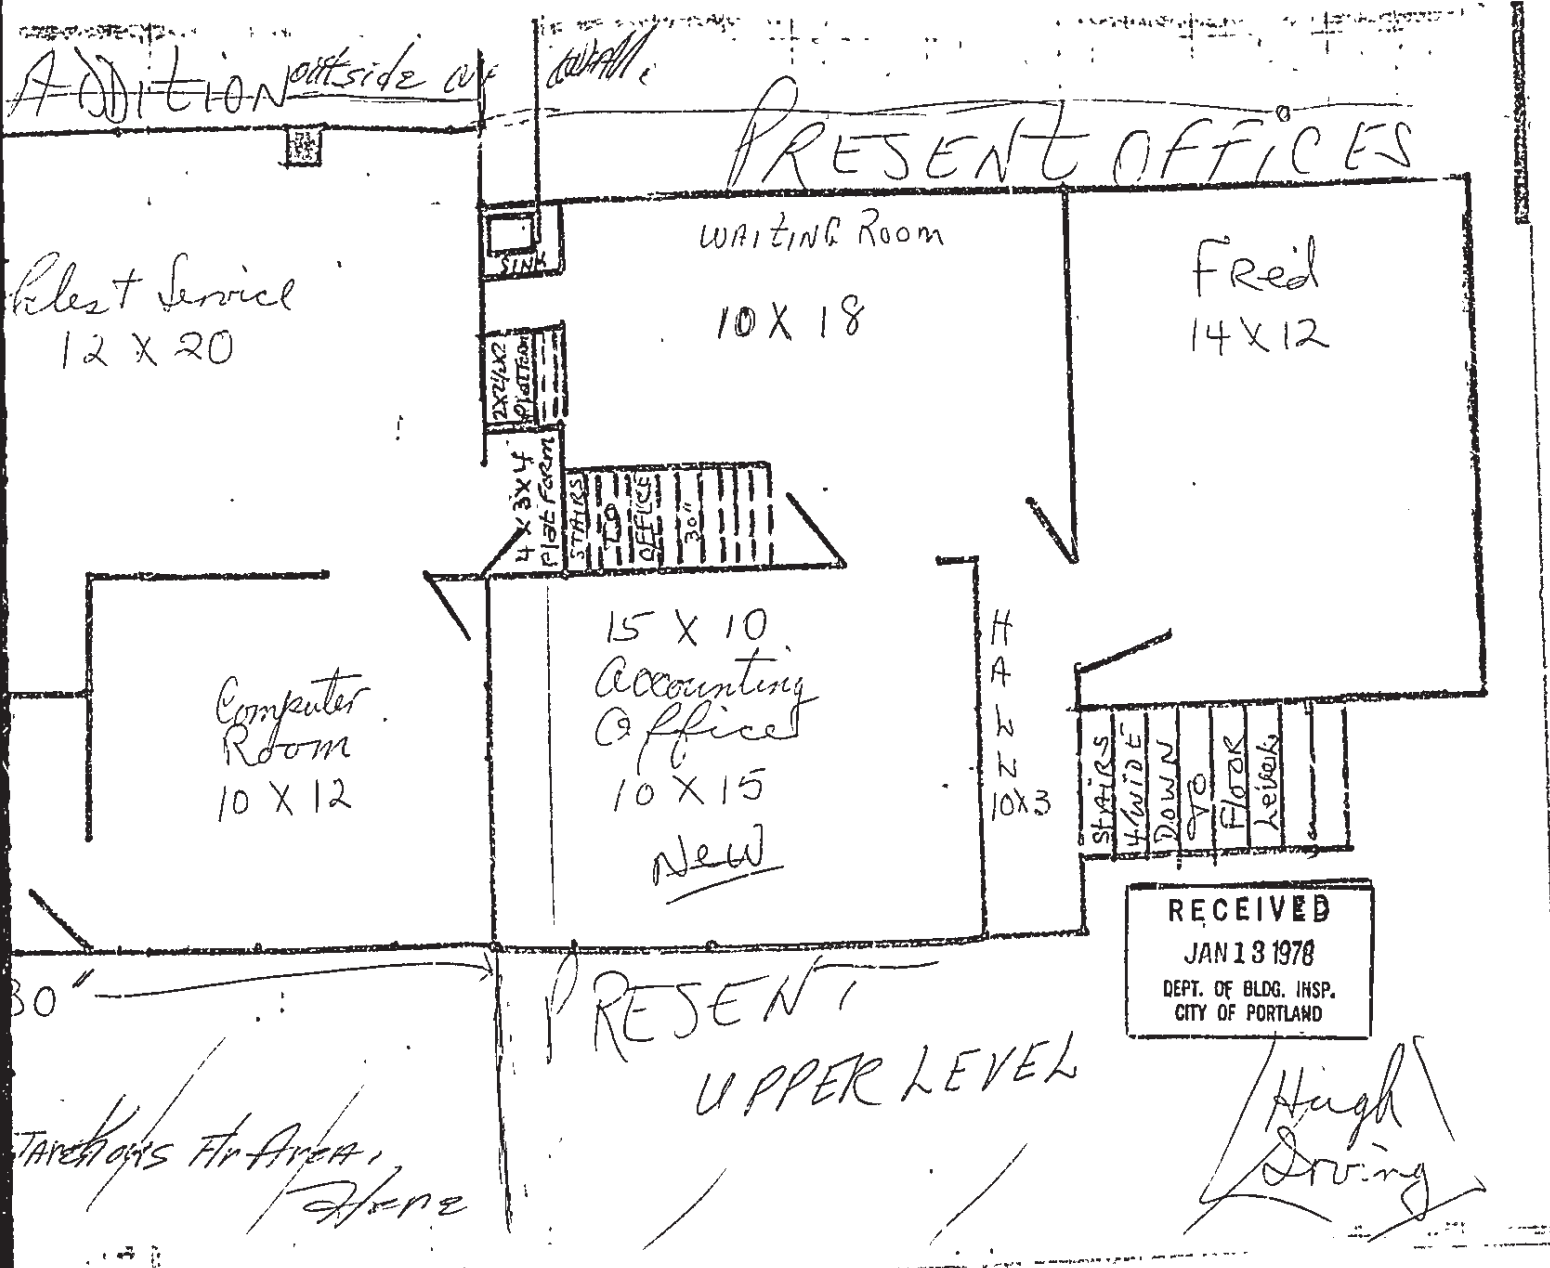 ADDITION outside of wall.
PRESENT OFFICES
SINK
WAITING ROOM
10 X 18
FRED
14 X 12
Service
12 X 20
2X2½X2
PLATFORM
4 X 3 X 4
PLATFORM
STAIRS
TO
OFFICE
30"
15 X 10
Accounting
Office
10 X 15
New
Computer
Room
10 X 12
HALL
10X3
STAIRS
4' WIDE
DOWN
TO
FLOOR
Level
RECEIVED
JAN 13 1978
DEPT. OF BLDG. INSP.
CITY OF PORTLAND
30"
PRESENT
UPPER LEVEL
Area,
Here
Hugh
Irving